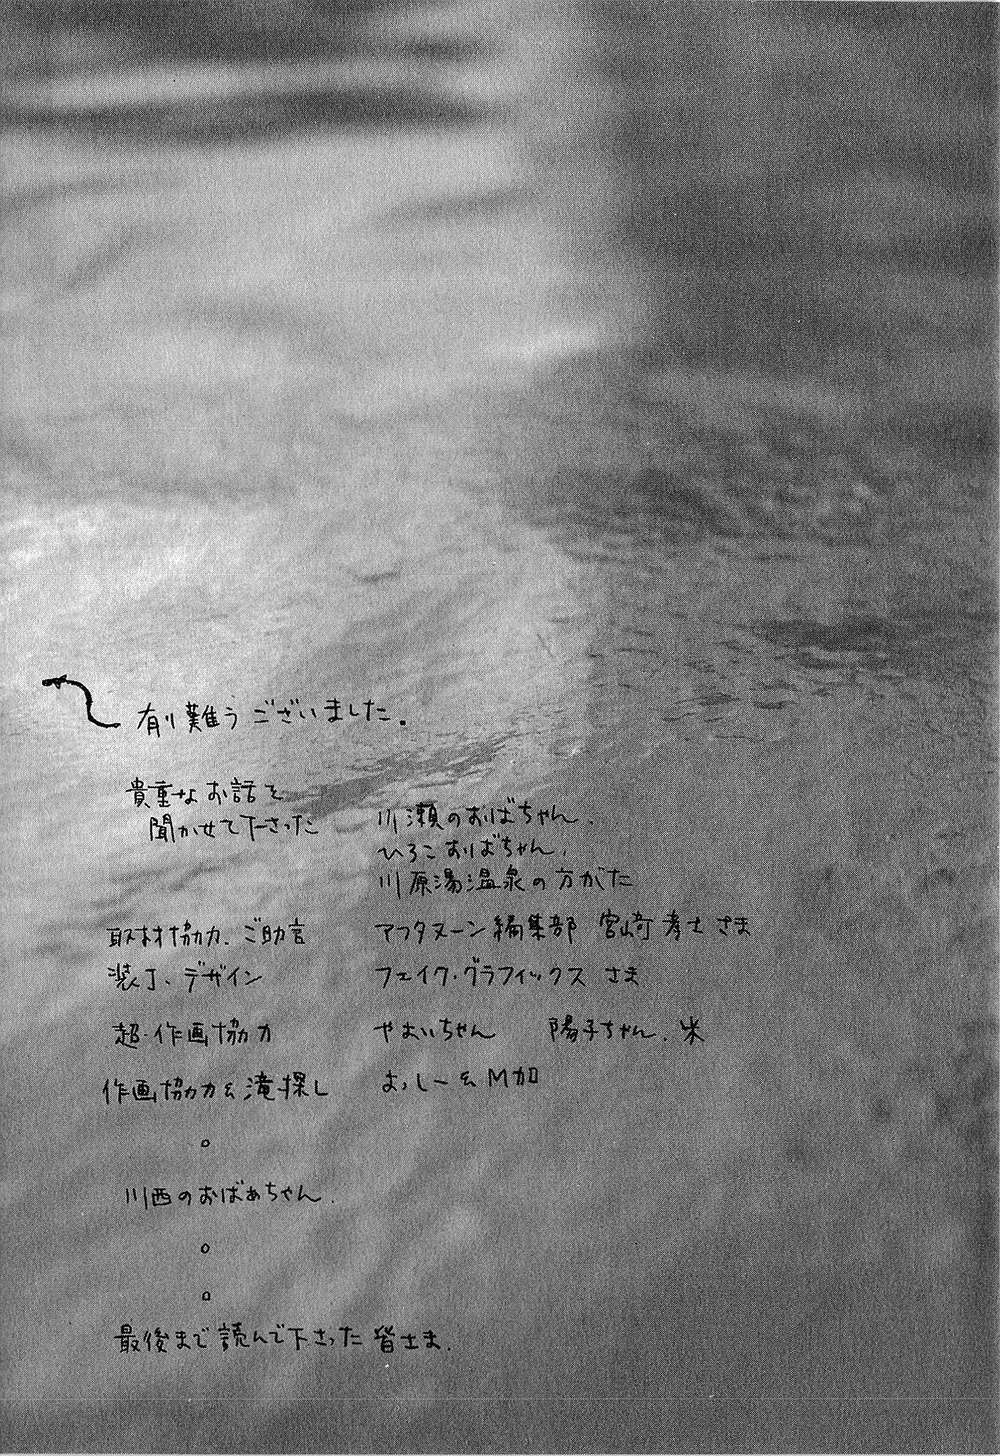 有り難うございました。
貴重なお話を
聞かせて下さった
川瀬のおばちゃん、
ひろこおばちゃん、
川原湯温泉の方がた
取材協力、ご助言 アフタヌーン編集部 宮崎孝士さま
装丁、デザイン フェイク・グラフィックス さま
超・作画協力 やおいちゃん 陽子ちゃん、米
作画協力&滝探し おっしー& M加
。
川西のおばあちゃん、
。
。
最後まで読んで下さった皆さま、